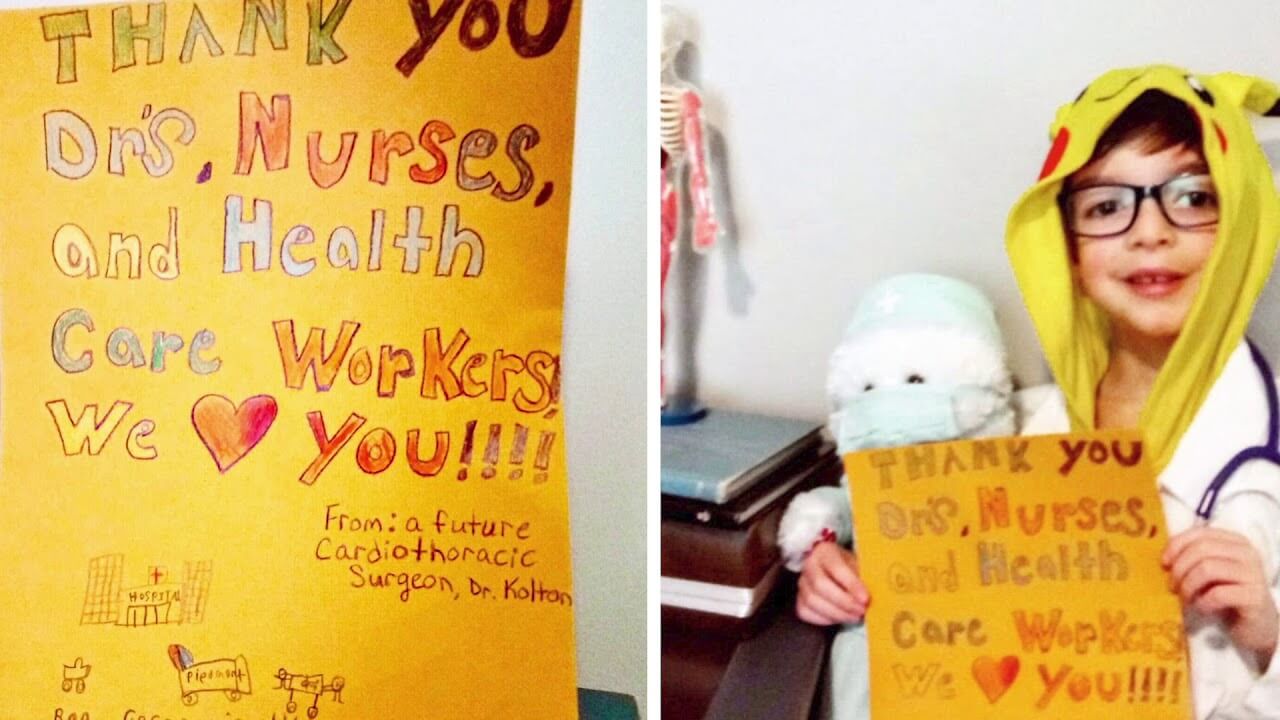 THANK YOU
Dr's, Nurses,
and Health
Care Workers!
We ❤ YOU!!!!
From: a future
Cardiothoracic
Surgeon, Dr. Kolton
HOSPITAL
Piedmont
THANK YOU
Dr's, Nurses,
and Health
Care Workers!
We ❤ YOU!!!!